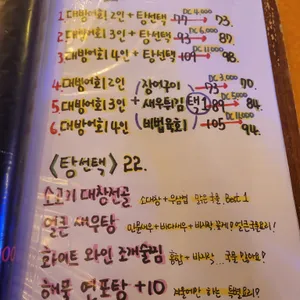 DC 4,000
1. 대방어회 2인 + 탕선택 77 → 73.
DC 6,000
2. 대방어회 3인 + 탕선택 93 → 87.
DC 11,000
3. 대방어회 4인 + 탕선택 109 → 98.
DC 3,000
4. 대방어회 2인 장어구이 73 → 70.
DC 5,000
5. 대방어회 3인 + 새우튀김 택1 89 → 84.
DC 11,000
6. 대방어회 4인 비법육회 105 → 94.
<탕선택> 22.
소고기 대창전골 소대창 + 우삼겹 Best 1
얼큰 새우탕
화이트 와인 조개술찜
해물 연포탕 +10